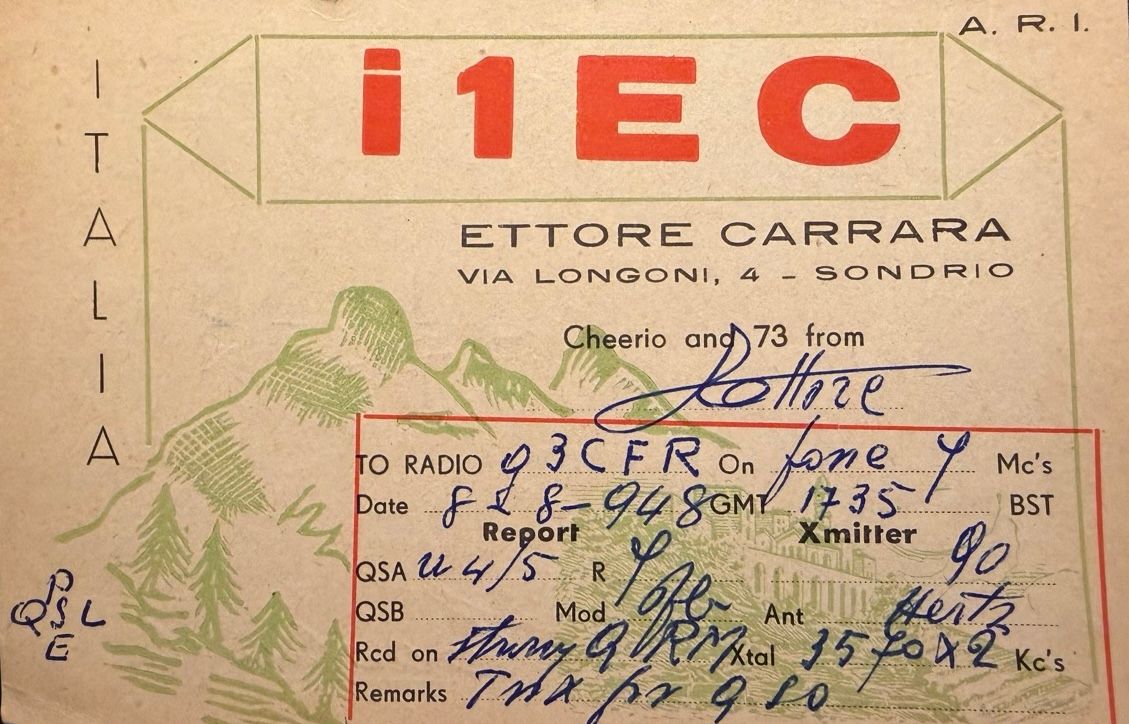 A. R. I.
i1EC
ITALIA
ETTORE CARRARA
VIA LONGONI, 4 - SONDRIO
Cheerio and 73 from
Ettore
TO RADIO g3CFR On fone 7 Mc's
Date 8-8-948 GMT 1735 BST
Report Xmitter
QSA u 4/5 R 90
QSB Mod Ant Hertz
Rcd on QRM Xtal 3570x2 Kc's
Remarks Tnx fr qso
PSE
QSL